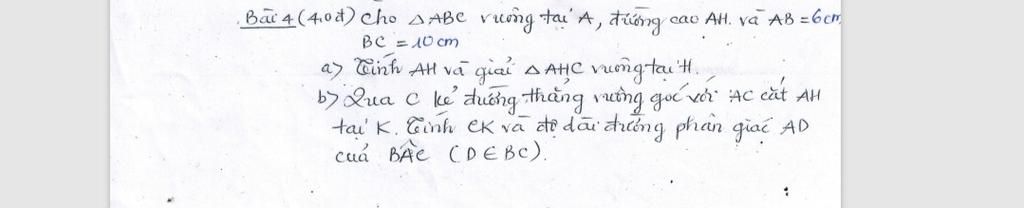 Bài 4 (4.0đ) Cho △ABC vuông tại A, đường cao AH. và AB = 6cm
BC = 10 cm
a) Tính AH và giải △AHC vuông tại H.
b) Qua C kẻ đường thẳng vuông góc với AC cắt AH
tại K. Tính CK và độ dài đường phân giác AD
của BÂC (D ∈ BC).